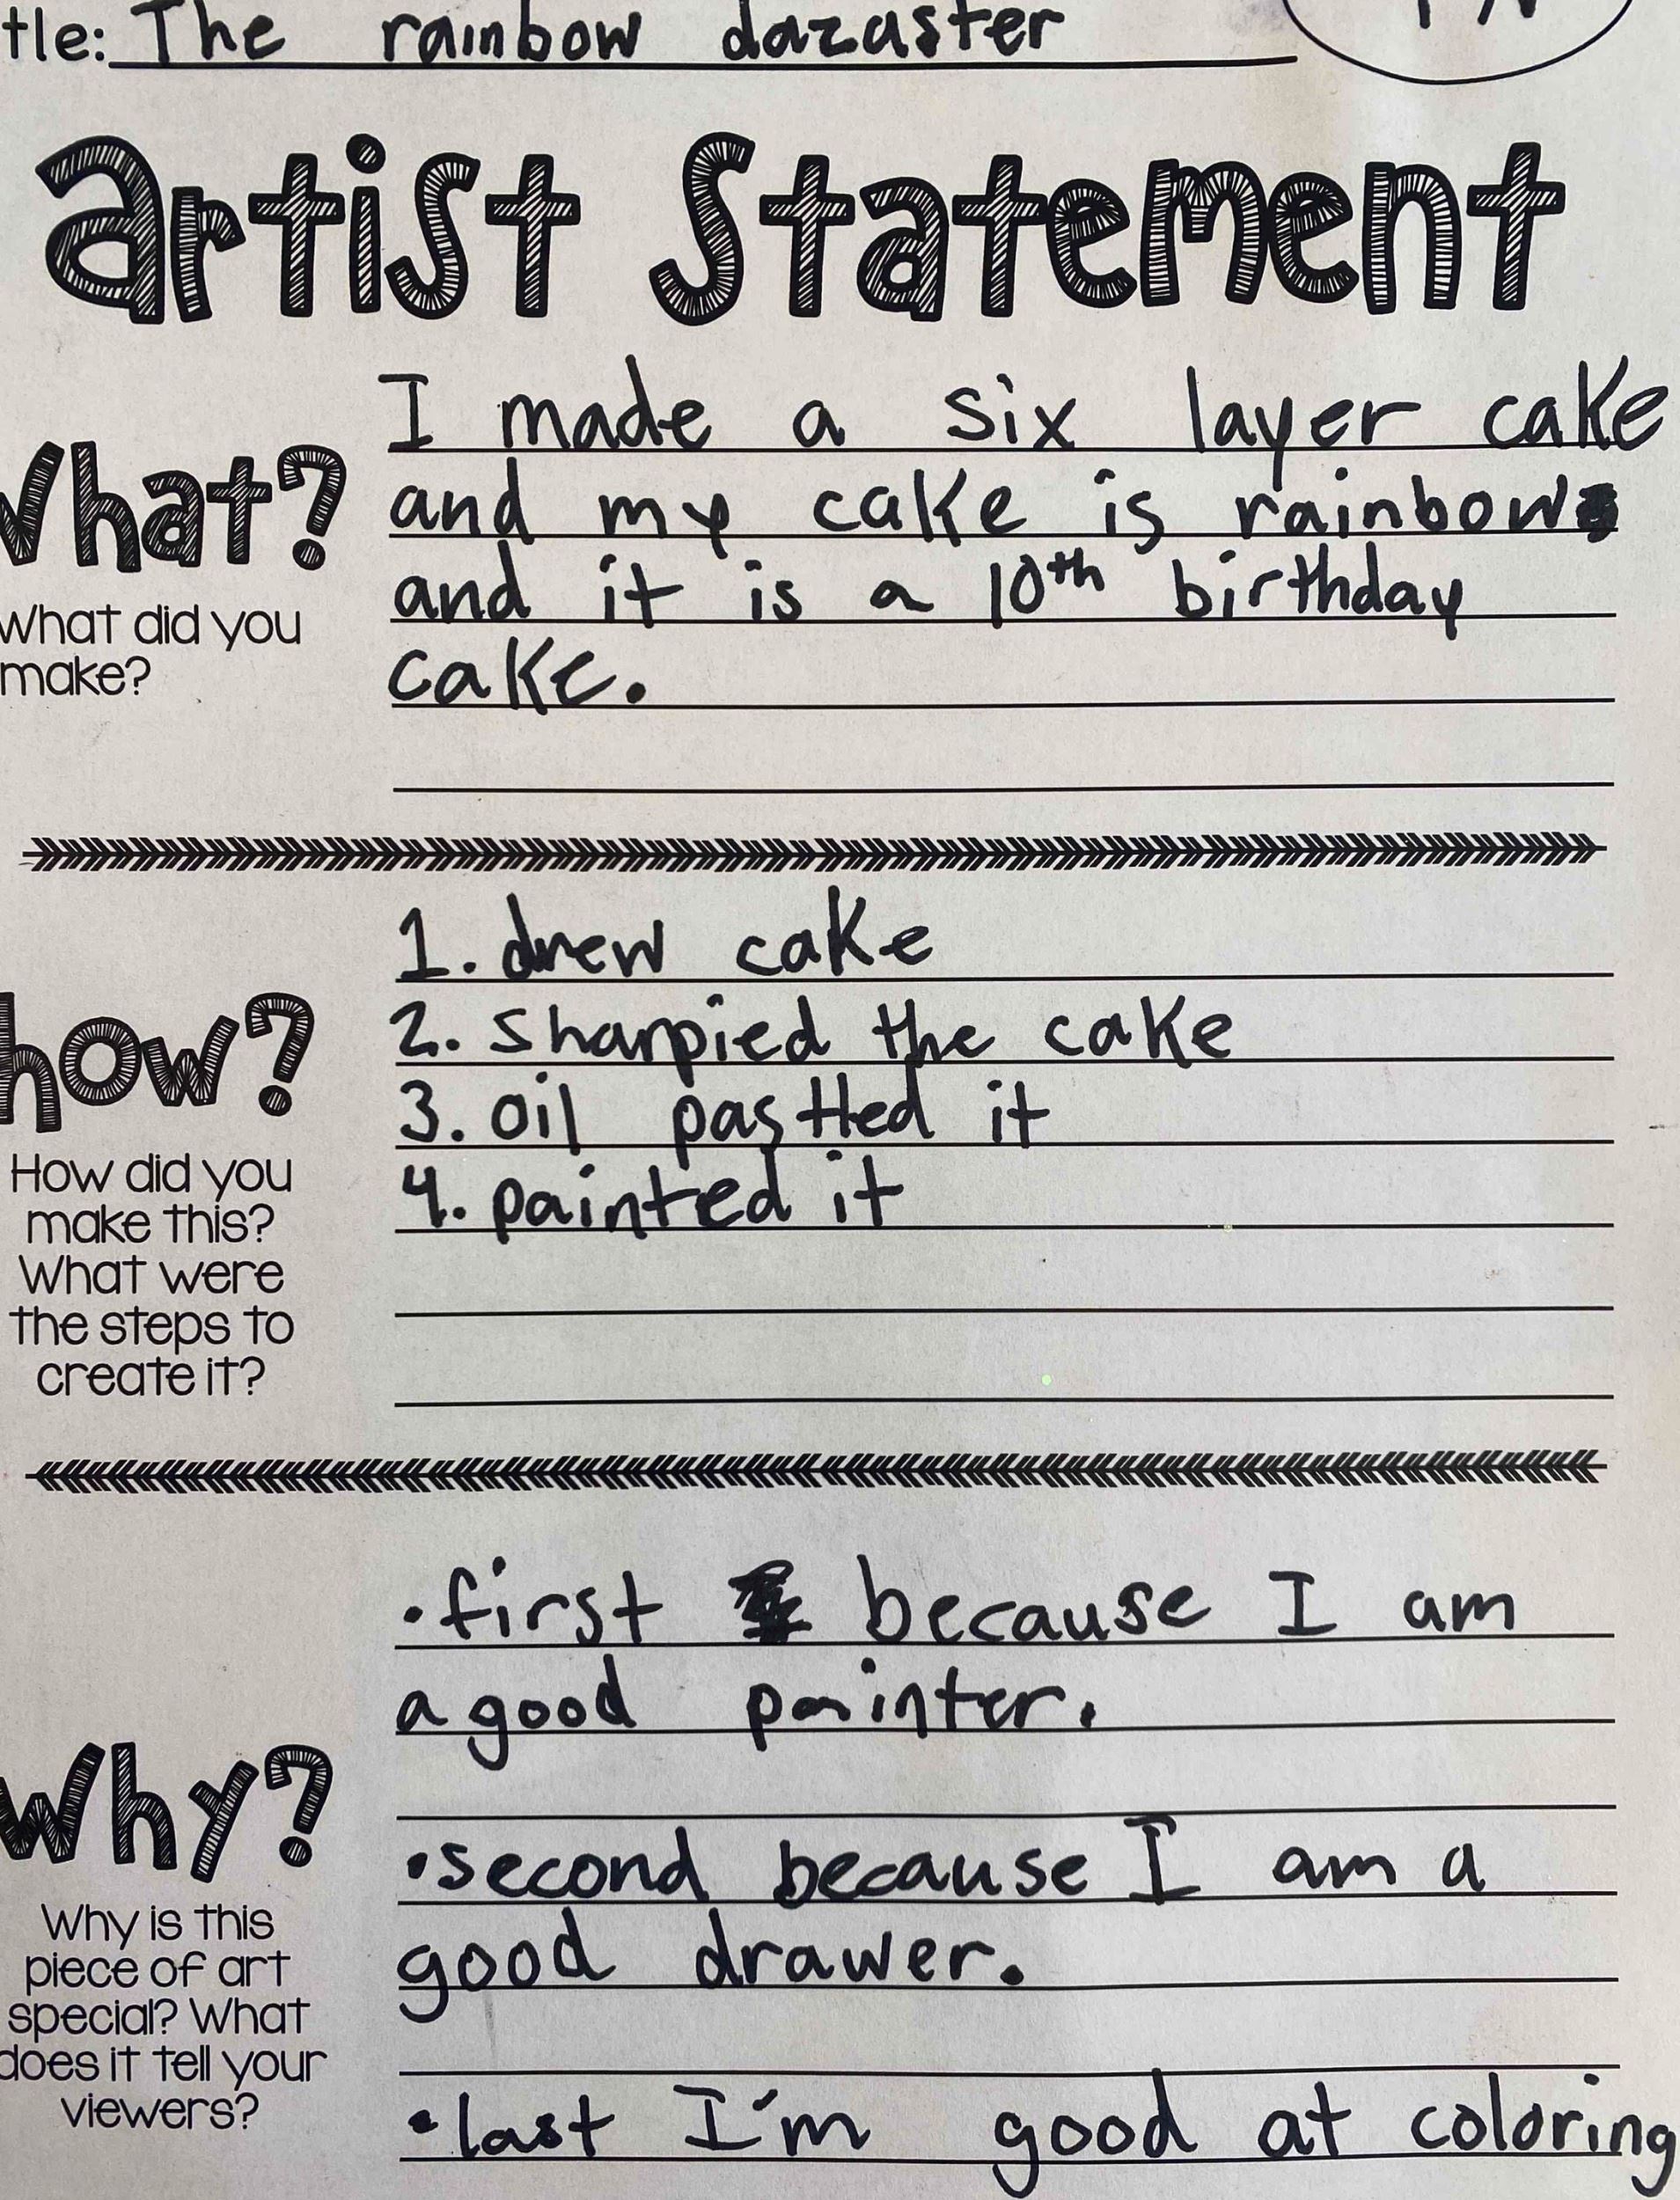 tle: The rainbow dazaster
artist Statement
What?
What did you
make?
I made a six layer cake
and my cake is rainbow
and it is a 10th birthday
cake.
how?
How did you
make this?
What were
the steps to
create it?
1. drew cake
2. sharpied the cake
3. oil pastled it
4. painted it
Why?
Why is this
piece of art
special? What
does it tell your
viewers?
• first because I am
a good painter.
• second because I am a
good drawer.
• last I'm good at coloring